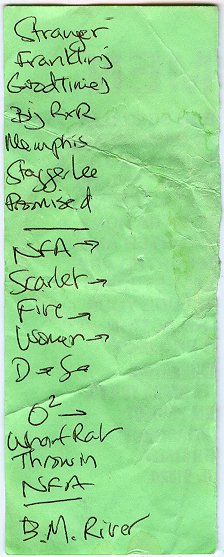 Stranger
Franklin's
Goodtimes
Big RxR
Memphis
StaggerLee
Promised
NFA →
Scarlet →
Fire →
Women →
D → S →
O² →
Wharf Rat
Throwin
NFA
B.M. River